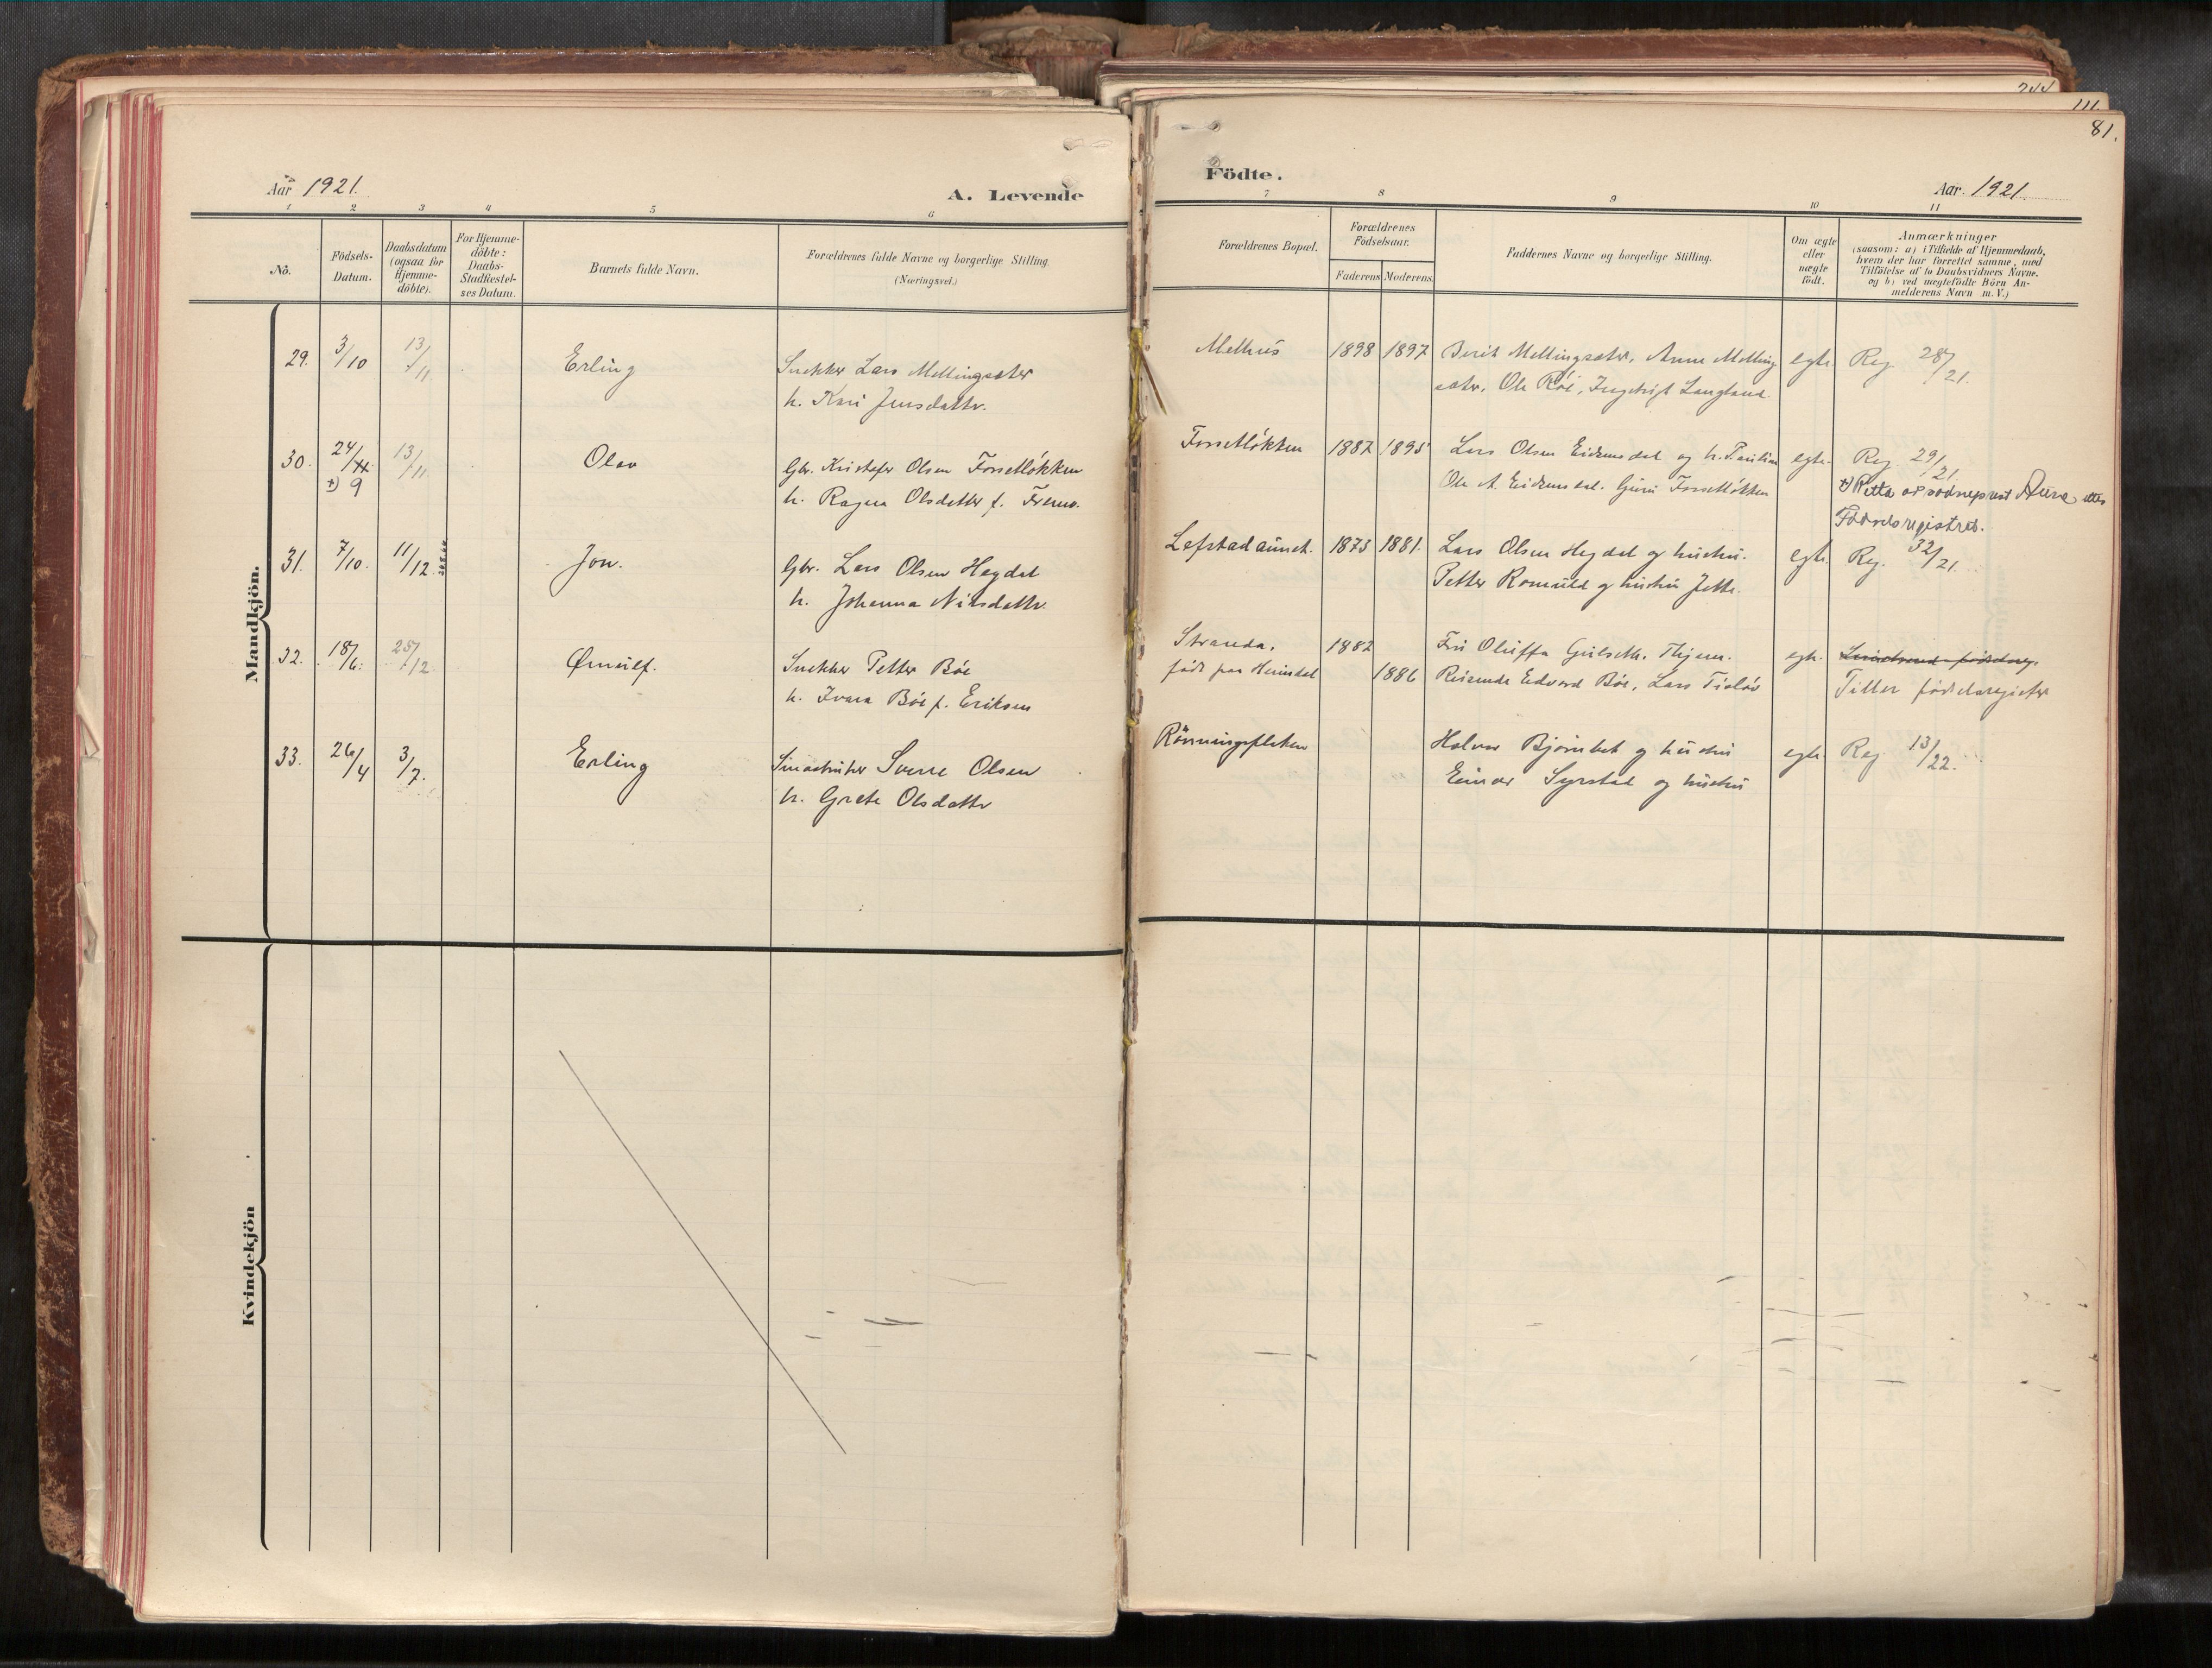 244
111.
81.
Aar 1921.
A. Levende
Födte.
Aar. 1921.
1 2 3 4 5 6 7 8 9 10 11
No.
Födsels-
Datum.
Daabsdatum
(ogsaa for
Hjemme-
döbte).
For Hjemme-
döbte:
Daabs-
Stadfæstel-
ses Datum.
Barnets fulde Navn.
Forældrenes fulde Navne og borgerlige Stilling
(Næringsvei.)
Forældrenes Bopæl.
Forældrenes
Födselsaar.
Faderens Moderens
Faddernes Navne og borgerlige Stilling.
Om ægte
eller
uægte
födt.
Anmærkninger
(saasom: a) i Tilfælde af Hjemmedaab,
hvem der har forrettet samme, med
Tilföielse af to Daabsvidners Navne.
og b) ved uægtefödte Börn An-
melderens Navn m. V.)
Mandkjön.
29. 3/10 13/11 Erling
Snekker Lars Mellingsæter
h. Kari Jensdatter.
Melhus 1898 1897
Berit Mellingsæter, Anne Melling
sæter, Ole Röe, Ingebrigt Langland.
egte. Reg. 28/21.
30. 24/11 13/11 Olav
+) 9
Gbr. Kristofer Olsen Fossetlökken
h. Ragna Olsdatter f. Fremo.
Fossetlökken 1887 1895
Lars Olsen Eidsmodal og h. Pauline
Ole A. Eidsmodal. Guri Fossetlökken
egte. Reg. 29/21.
+) Retta av sokneprest Aune etter
Födselsregistret.
31. 7/10. 11/12 Jon.
Gbr. Lars Olsen Hegdal
h. Johanna Nilsdatter.
Lefstadaunet. 1873 1881.
Lars Olsen Hegdal og hustru.
Petter Romuld og hustru Jette.
egte. Reg. 32/21.
32. 18/6. 25/12 Ørnulf.
Snekker Petter Böe
h. Ivara Böe f. Eriksen
Stranda.
födt paa Heimdal
1882
1886
Fru Oluffa Gulseth. Thjem.
Reisende Edvard Böe, Lars Tisløv
egte.
Tiller födselsregister
33. 26/4 3/7. Erling
Smaabruker Sverre Olsen
h. Grete Olsdatter
Rönningsletten
Halvor Bjørnbet og hustru
Einar Syrstad og hustru
egte. Reg 13/22.
Kvindekjön